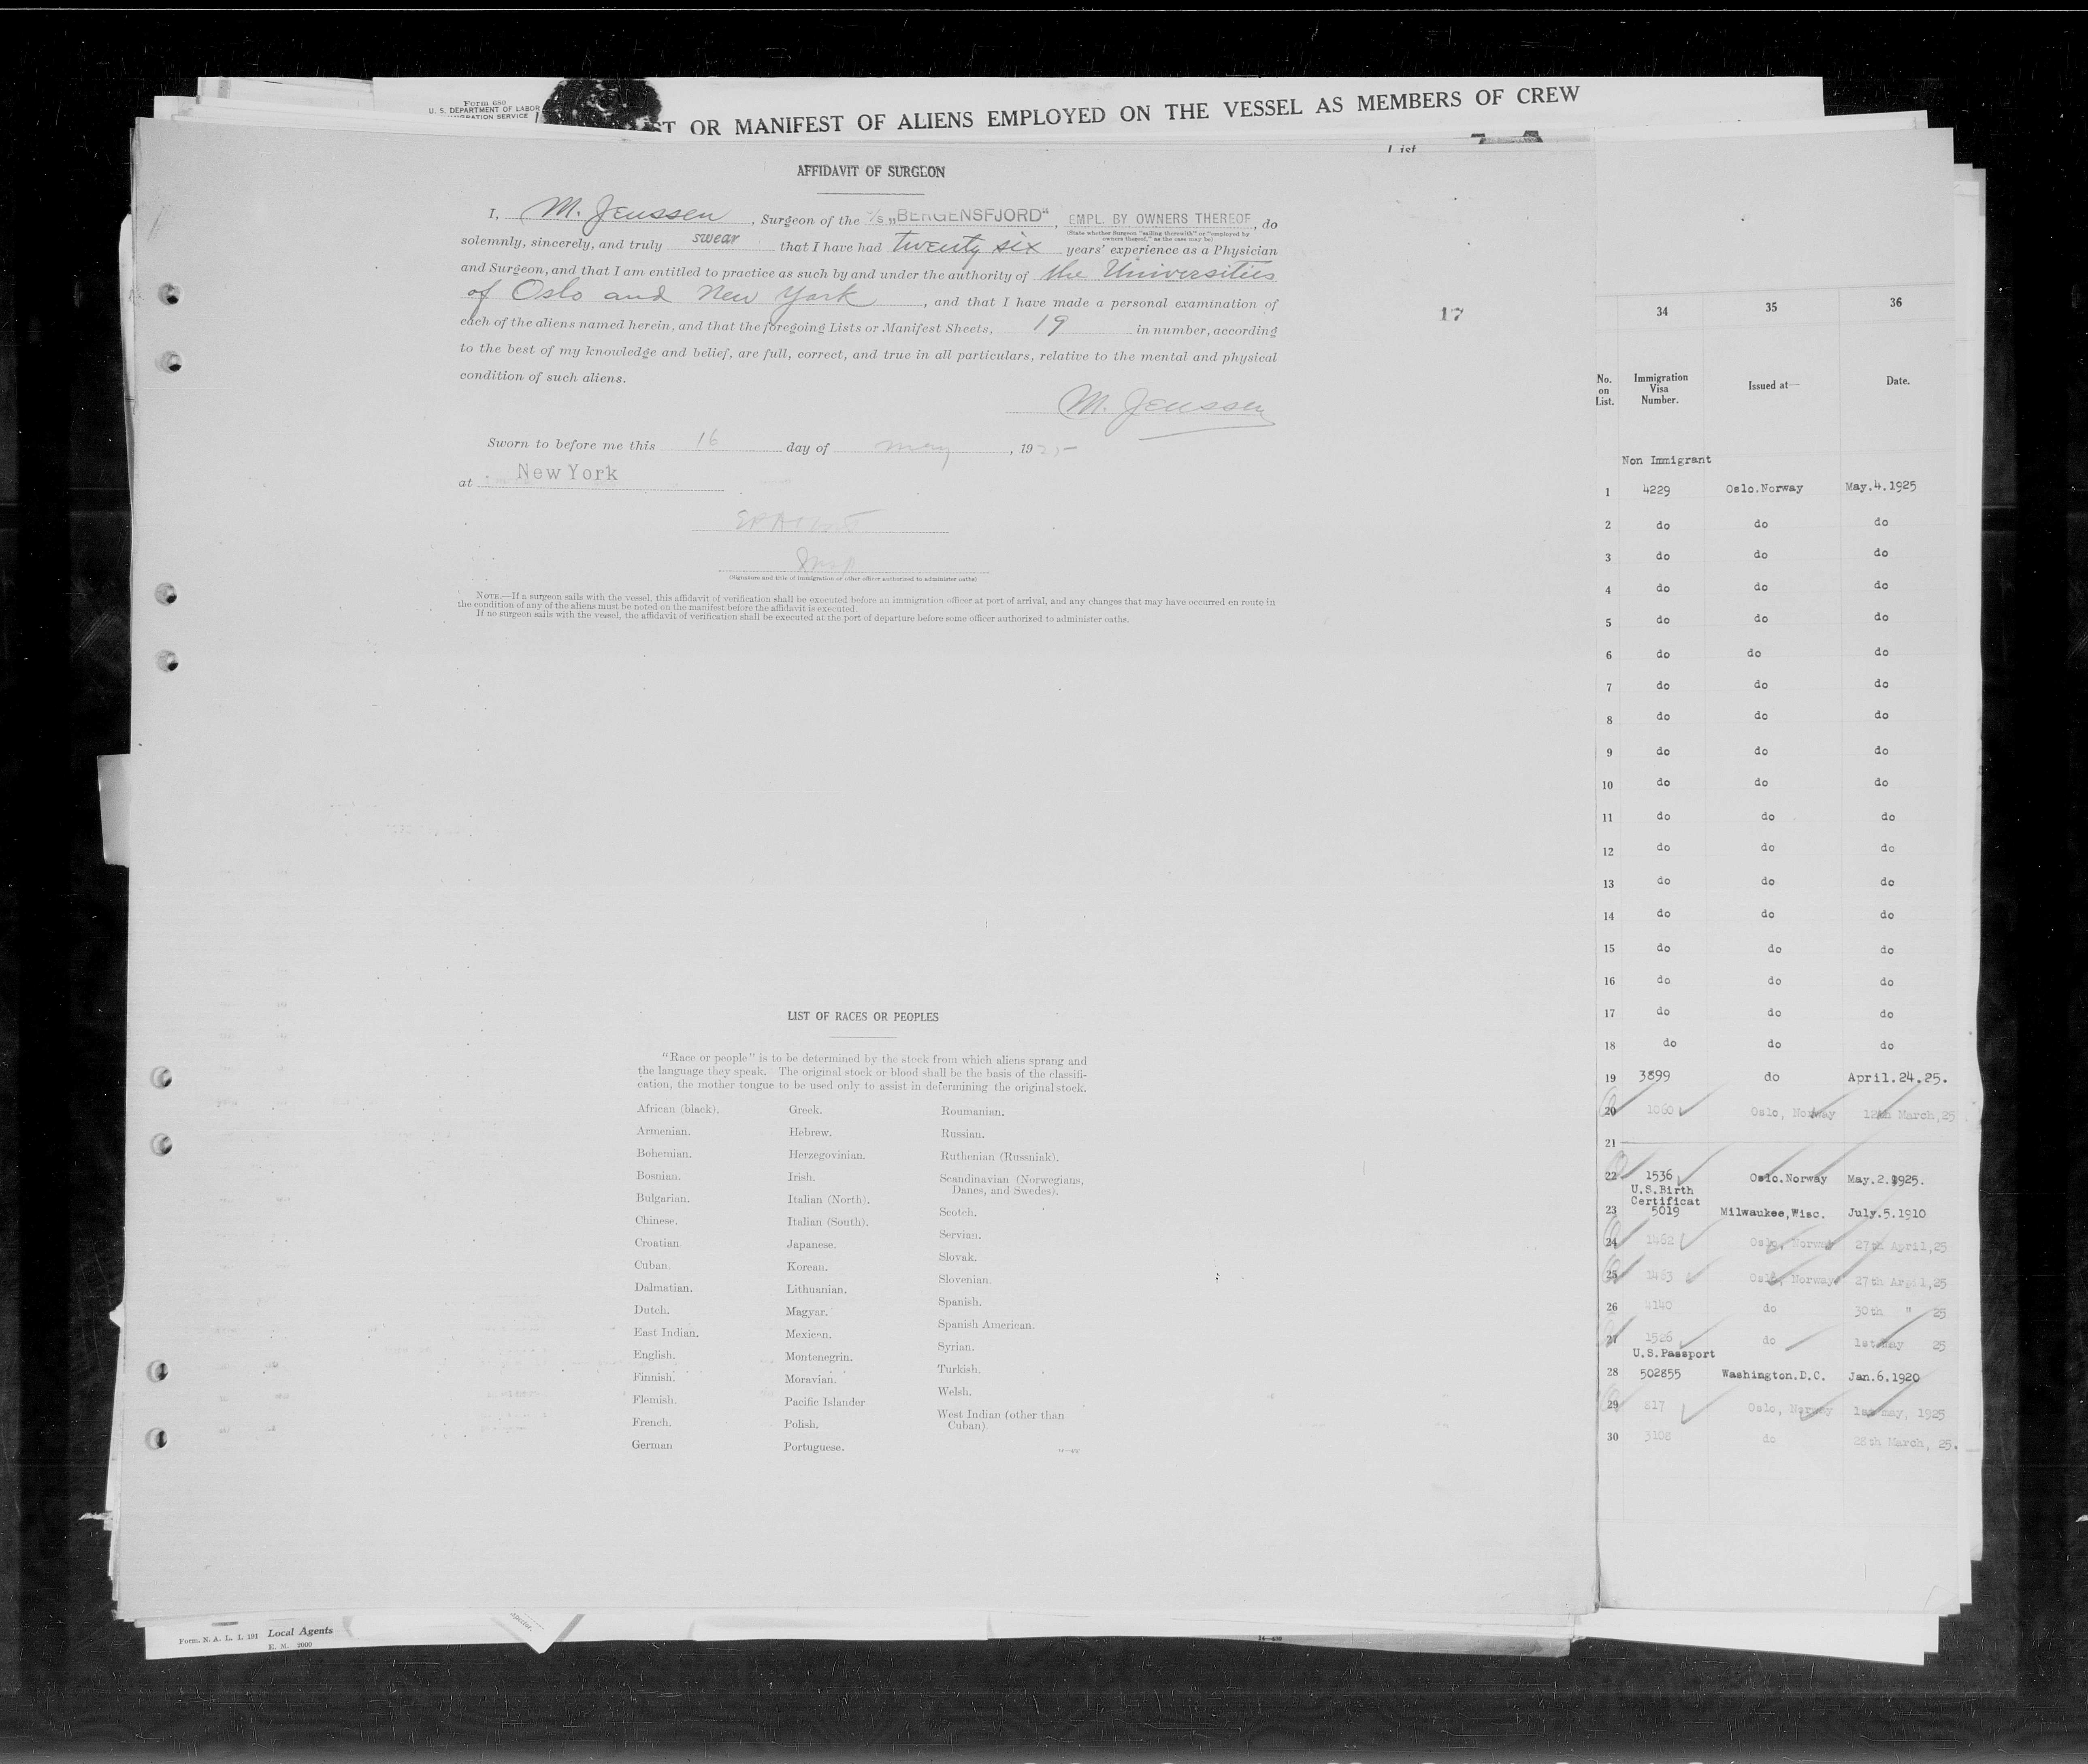 Form 680
U. S. DEPARTMENT OF LABOR
IMMIGRATION SERVICE
ST OR MANIFEST OF ALIENS EMPLOYED ON THE VESSEL AS MEMBERS OF CREW
List
AFFIDAVIT OF SURGEON
I, M. Jenssen, Surgeon of the S/S „BERGENSFJORD“, EMPL. BY OWNERS THEREOF, do
(State whether Surgeon "sailing therewith" or "employed by owners thereof," as the case may be)
solemnly, sincerely, and truly swear that I have had twenty six years' experience as a Physician
and Surgeon, and that I am entitled to practice as such by and under the authority of the Universities
of Oslo and New York, and that I have made a personal examination of
each of the aliens named herein, and that the foregoing Lists or Manifest Sheets, 19 in number, according
to the best of my knowledge and belief, are full, correct, and true in all particulars, relative to the mental and physical
condition of such aliens.
M. Jenssen
Sworn to before me this 16 day of May, 1925
at New York
Insp
(Signature and title of immigration or other officer authorized to administer oaths)
NOTE.—If a surgeon sails with the vessel, this affidavit of verification shall be executed before an immigration officer at port of arrival, and any changes that may have occurred en route in
the condition of any of the aliens must be noted on the manifest before the affidavit is executed.
If no surgeon sails with the vessel, the affidavit of verification shall be executed at the port of departure before some officer authorized to administer oaths.
17
LIST OF RACES OR PEOPLES
"Race or people" is to be determined by the stock from which aliens sprang and
the language they speak. The original stock or blood shall be the basis of the classifi-
cation, the mother tongue to be used only to assist in determining the original stock.
African (black).
Armenian.
Bohemian.
Bosnian.
Bulgarian.
Chinese.
Croatian.
Cuban.
Dalmatian.
Dutch.
East Indian.
English.
Finnish.
Flemish.
French.
German
Greek.
Hebrew.
Herzegovinian.
Irish.
Italian (North).
Italian (South).
Japanese.
Korean.
Lithuanian.
Magyar.
Mexican.
Montenegrin.
Moravian.
Pacific Islander
Polish.
Portuguese.
Roumanian.
Russian.
Ruthenian (Russniak).
Scandinavian (Norwegians,
Danes, and Swedes).
Scotch.
Servian.
Slovak.
Slovenian.
Spanish.
Spanish American.
Syrian.
Turkish.
Welsh.
West Indian (other than
Cuban)
34 35 36
No. on List. Immigration Visa Number. Issued at— Date.
Non Immigrant
1 4229 Oslo.Norway May.4.1925
2 do do do
3 do do do
4 do do do
5 do do do
6 do do do
7 do do do
8 do do do
9 do do do
10 do do do
11 do do do
12 do do do
13 do do do
14 do do do
15 do do do
16 do do do
17 do do do
18 do do do
19 3899 do April.24.25.
20 1060 Oslo, Norway 12th March,25
21
22 1536 Oslo.Norway May.2.1925.
U.S.Birth
Certificat
23 5019 Milwaukee,Wisc. July.5.1910
24 1462 Oslo, Norway 27th April,25
25 1463 Oslo, Norway 27th April,25
26 4140 do 30th " 25
27 1526 do 1st May 25
U.S.Passport
28 502855 Washington.D.C. Jan.6.1920
29 817 Oslo, Norway 1st may, 1925
30 3108 do 28th March, 25.
Form. N. A. L. I. 191 Local Agents
E. M. 2000